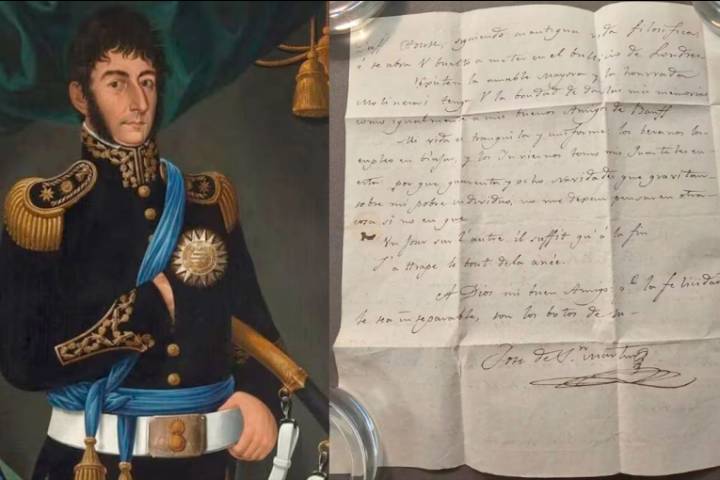 Duff House, siguiendo su antigua vida filosofica
ó se abra V buelto a meter en el bullicio de Londres
la amable Mayora y la honrrada
Molinera; tenga V la bondad de darlas mis memorias
como igualmente a mis buenos Amigos de Banff
Mi vida es tranquila y uniforme los beranos los
empleo en biajar, y los Inviernos tomo mis Cuarteles en
esta por que quarenta y ocho navidades que gravitan
sobre mi pobre individuo, no me dejan pensar en otra
cosa si no en que
Un Jour sur l'autre il suffit qu'à la fin
J'attrape le bout de la anée.
A Dios mi buen Amigo, qe. la felicidad
le sea inseparable, son los botos de su
Jose de Sn. Martin